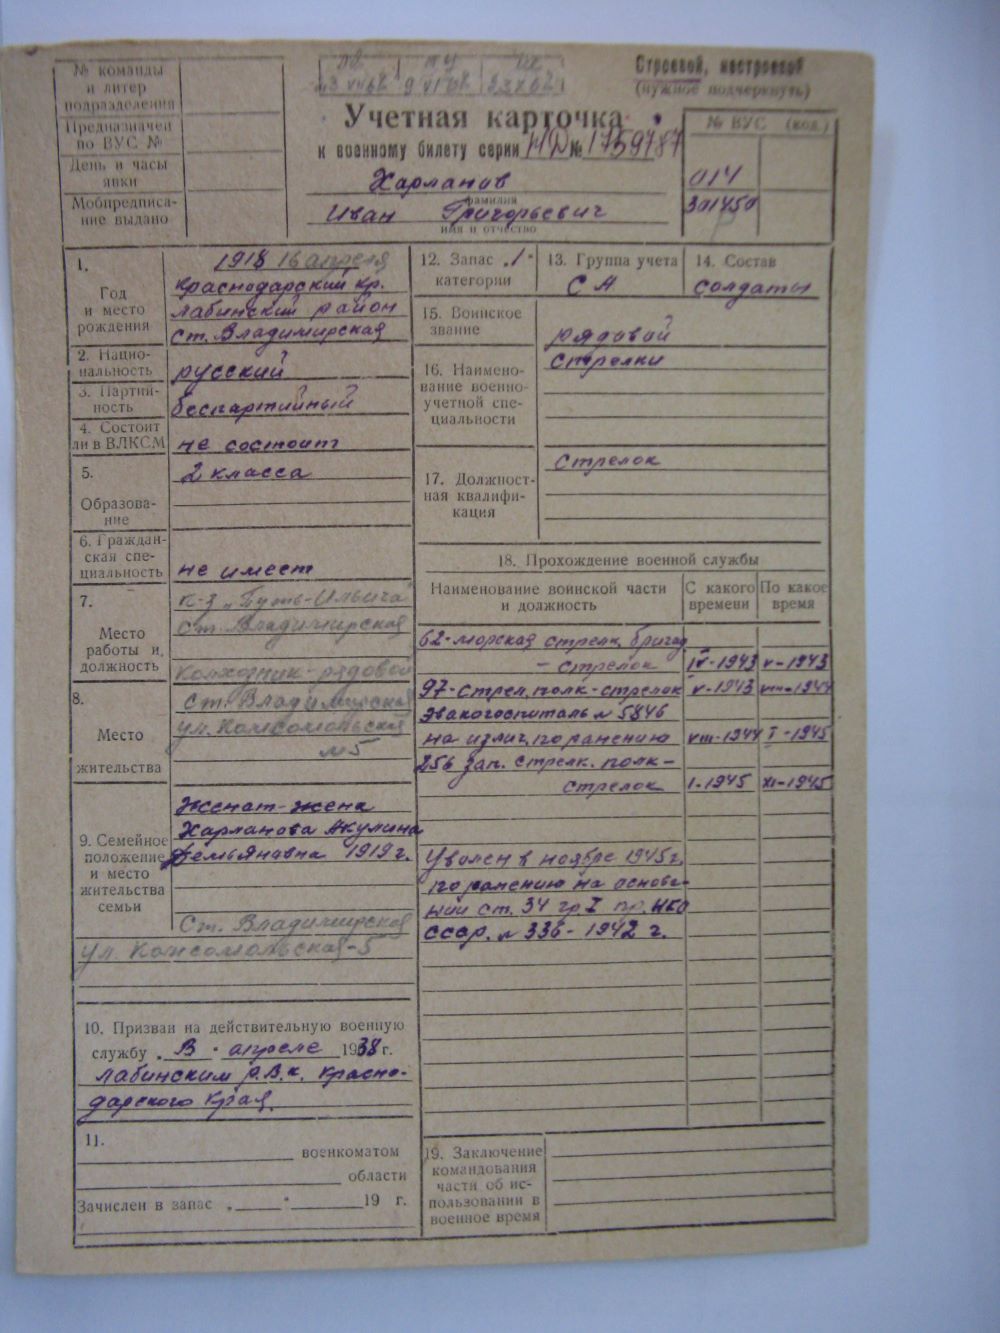 № команды
и литер
подразделения
Предназначен
по ВУС №
День и часы
явки
Мобпредписа-
ние выдано
Строевой, нестроевой
(нужное подчеркнуть)
Учетная карточка
к военному билету серии НД № 1759787
Харланов
фамилия
Иван Григорьевич
имя и отчество
№ ВУС (код)
014
301450
1.
Год
и место
рождения
1918 16 апреля
Краснодарский кр.
Лабинский район
ст. Владимирская
2. Нацио-
нальность
русский
3. Партий-
ность
беспартийный
4. Состоит
ли в ВЛКСМ
не состоит
5.
Образова-
ние
2 класса
6. Граждан-
ская спе-
циальность
не имеет
7.
Место
работы и
должность
к-з „Путь-Ильича"
ст. Владимирская
колхозник-рядовой
8.
Место
жительства
ст. Владимирская
ул. Комсомольская
№5
9. Семейное
положение
и место
жительства
семьи
Женат-жена
Харланова Акулина
Демьяновна 1919 г.
Ст. Владимирская
ул. Комсомольская-5
10. Призван на действительную военную
службу „В" апреле 1938 г.
Лабинским р.в.к. Красно-
дарского края.
11.
военкоматом
области
Зачислен в запас „ " 19 г.
12. Запас 1
категории
13. Группа учета
СА
14. Состав
солдаты
15. Воинское
звание
рядовой
16. Наимено-
вание военно-
учетной спе-
циальности
стрелки
17. Должност-
ная квалифи-
кация
стрелок
18. Прохождение военной службы
Наименование воинской части
и должность
С какого
времени
По какое
время
62-морская стрелк. бригад
- стрелок IV-1943 V-1943
97-стрел. полк-стрелок V-1943 VIII-1944
Эвакогоспиталь № 5846
на излич. по ранению VIII-1944 I-1945
256 зап. стрелк. полк-
стрелок I-1945 XI-1945
Уволен в ноябре 1945 г.
по ранению на основа-
нии ст. 34 гр I пр. НКО
СССР. № 336-1942 г.
19. Заключение
командования
части об ис-
пользовании в
военное время